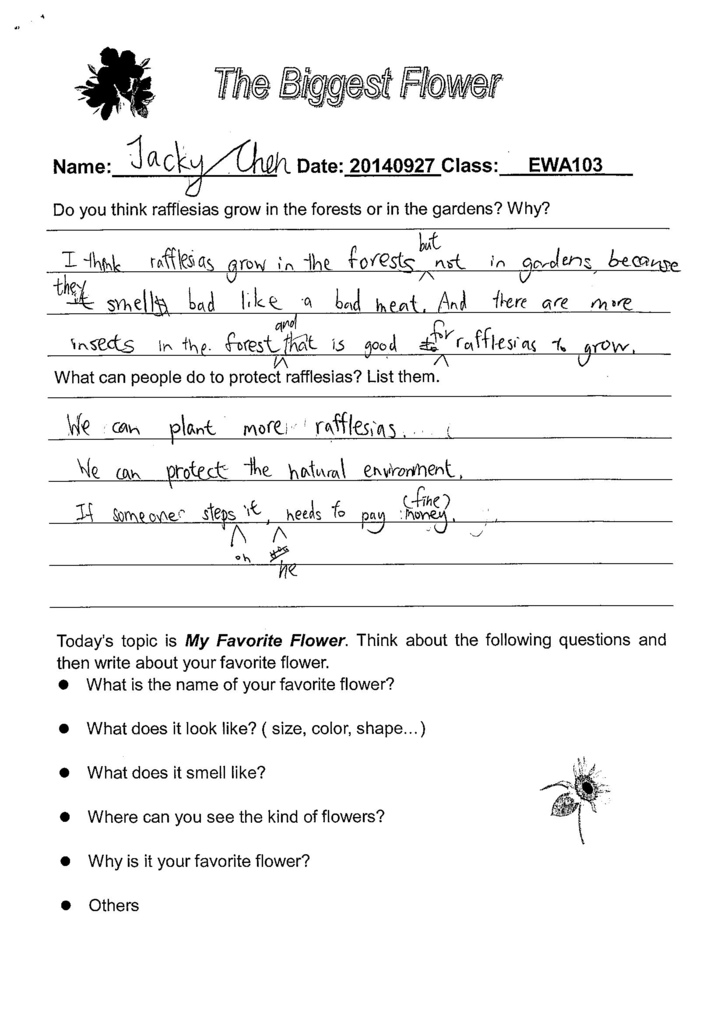 The Biggest Flower
Name: Jacky Chen Date: 20140927 Class: EWA103
Do you think rafflesias grow in the forests or in the gardens? Why?
but
I think rafflesias grow in the forests not in gardens, because
they
smell bad like a bad meat. And there are more
and for
insects in the forest that is good rafflesias to grow.
What can people do to protect rafflesias? List them.
We can plant more rafflesias.
We can protect the natural environment.
(fine)
If someone steps it, needs to pay money.
on
he
Today's topic is My Favorite Flower. Think about the following questions and
then write about your favorite flower.
● What is the name of your favorite flower?
● What does it look like? ( size, color, shape...)
● What does it smell like?
● Where can you see the kind of flowers?
● Why is it your favorite flower?
● Others